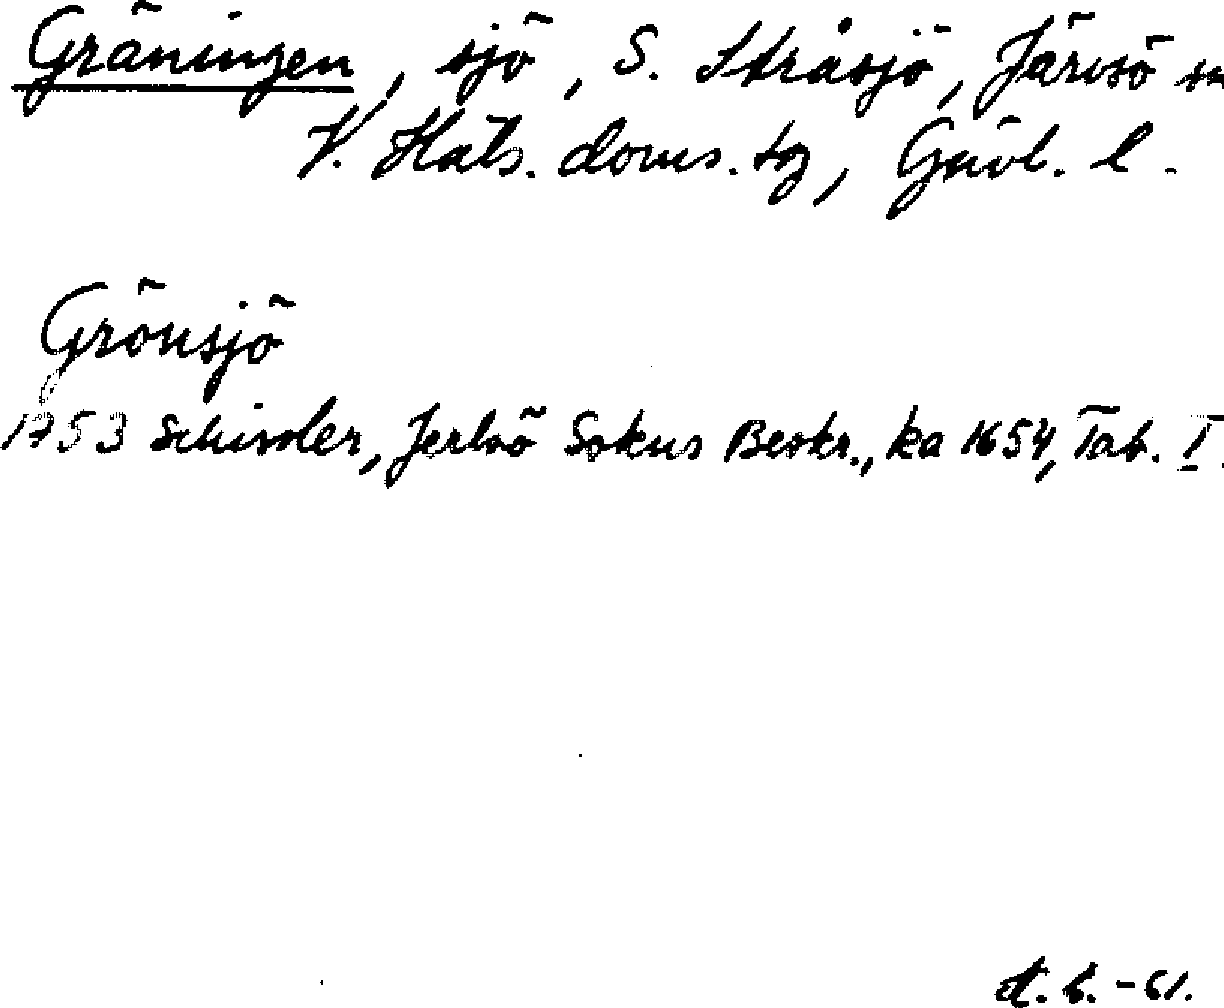 Gräningen, sjö, S. Stråsjö, Järvsö sn
V. Häls. doms. tg, Gävl. l.
Grönsjö
1753 Schissler, Jerlsö Sokns Beskr., ka 1654, Tab. I.